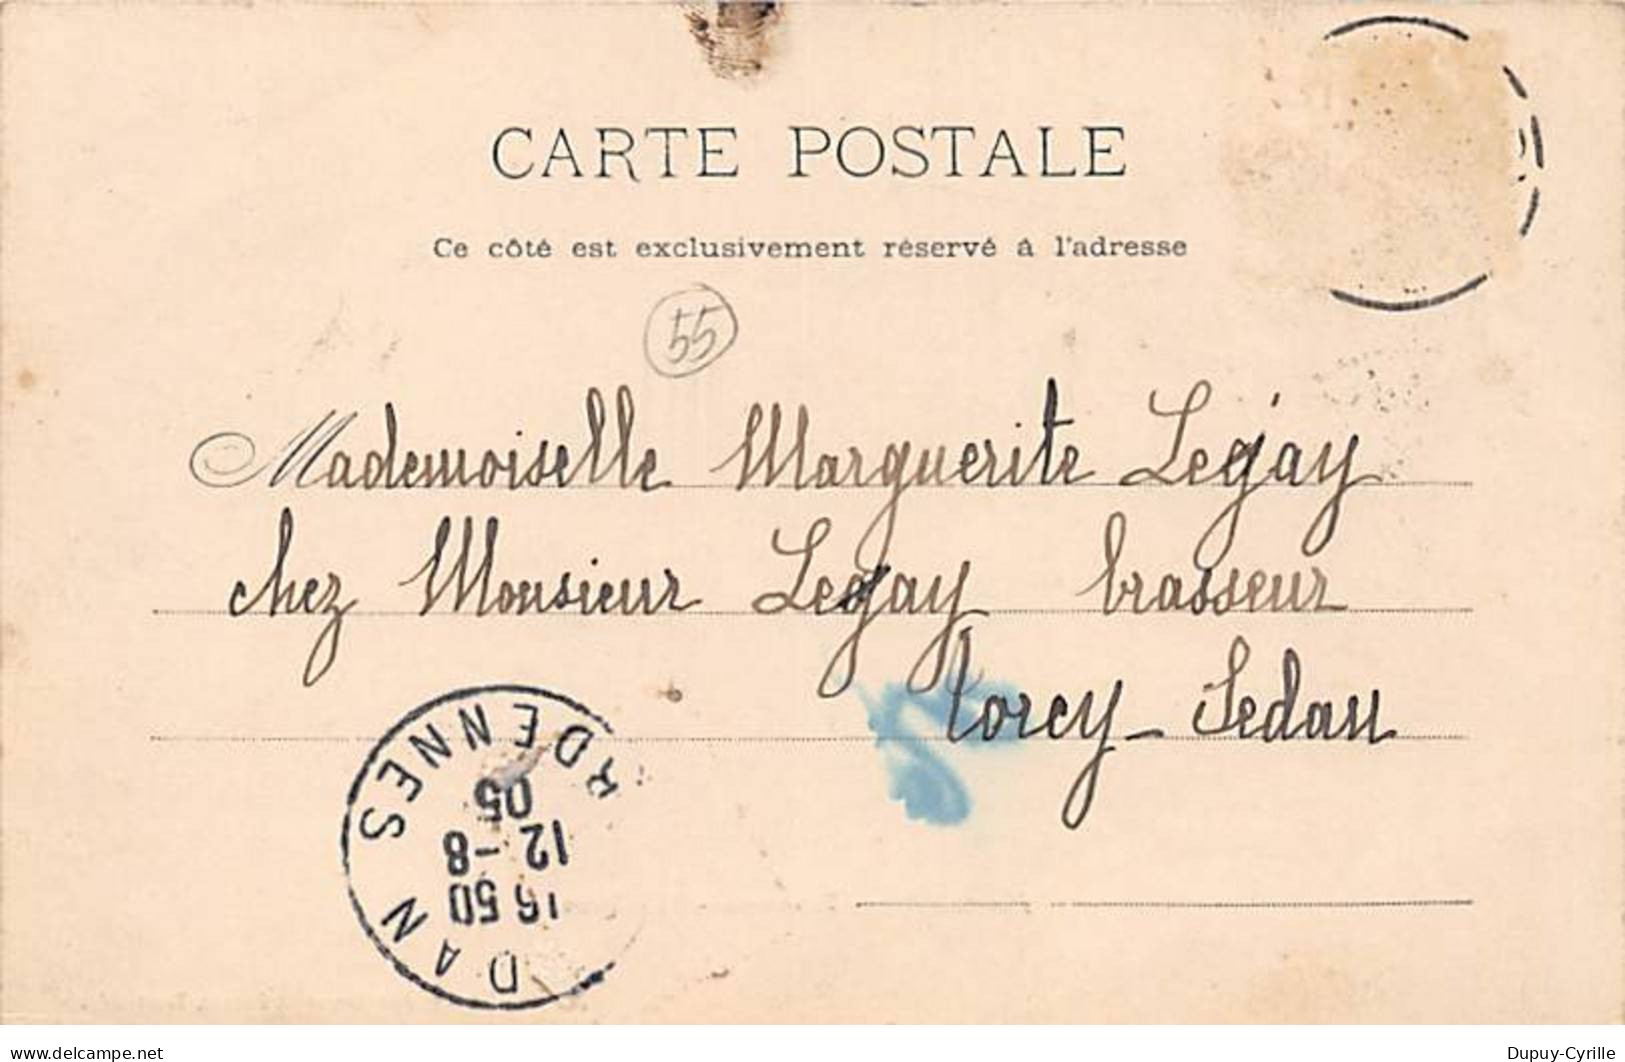 CARTE POSTALE
Ce côté est exclusivement réservé à l'adresse
55
Mademoiselle Marguerite Legay
chez Monsieur Legay brasseur
Torcy - Sedan
DAN
16 50
12 - 8
05
RDENNES
www.delcampe.net
Dupuy-Cyrille